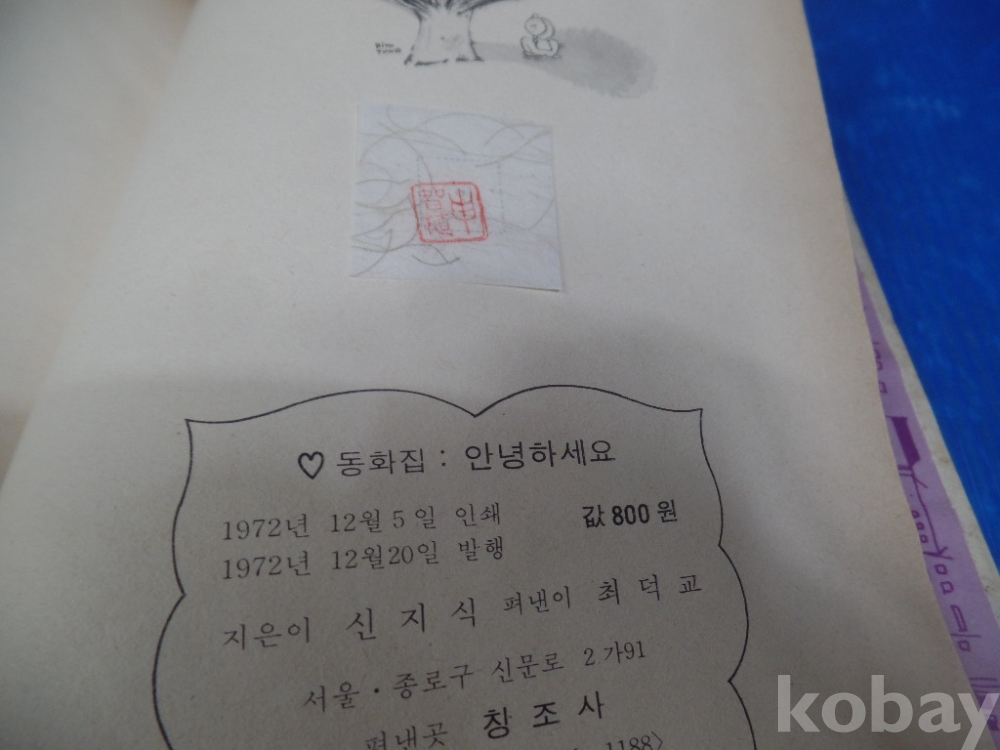 Kim
Yung
申
智植
♡동화집 : 안녕하세요
1972년 12월 5일 인쇄 값 800원
1972년 12월20일 발행
지은이 신 지 식 펴낸이 최 덕 교
서울 · 종로구 신문로 2가91
펴낸곳 창 조 사
1188〉
kobay